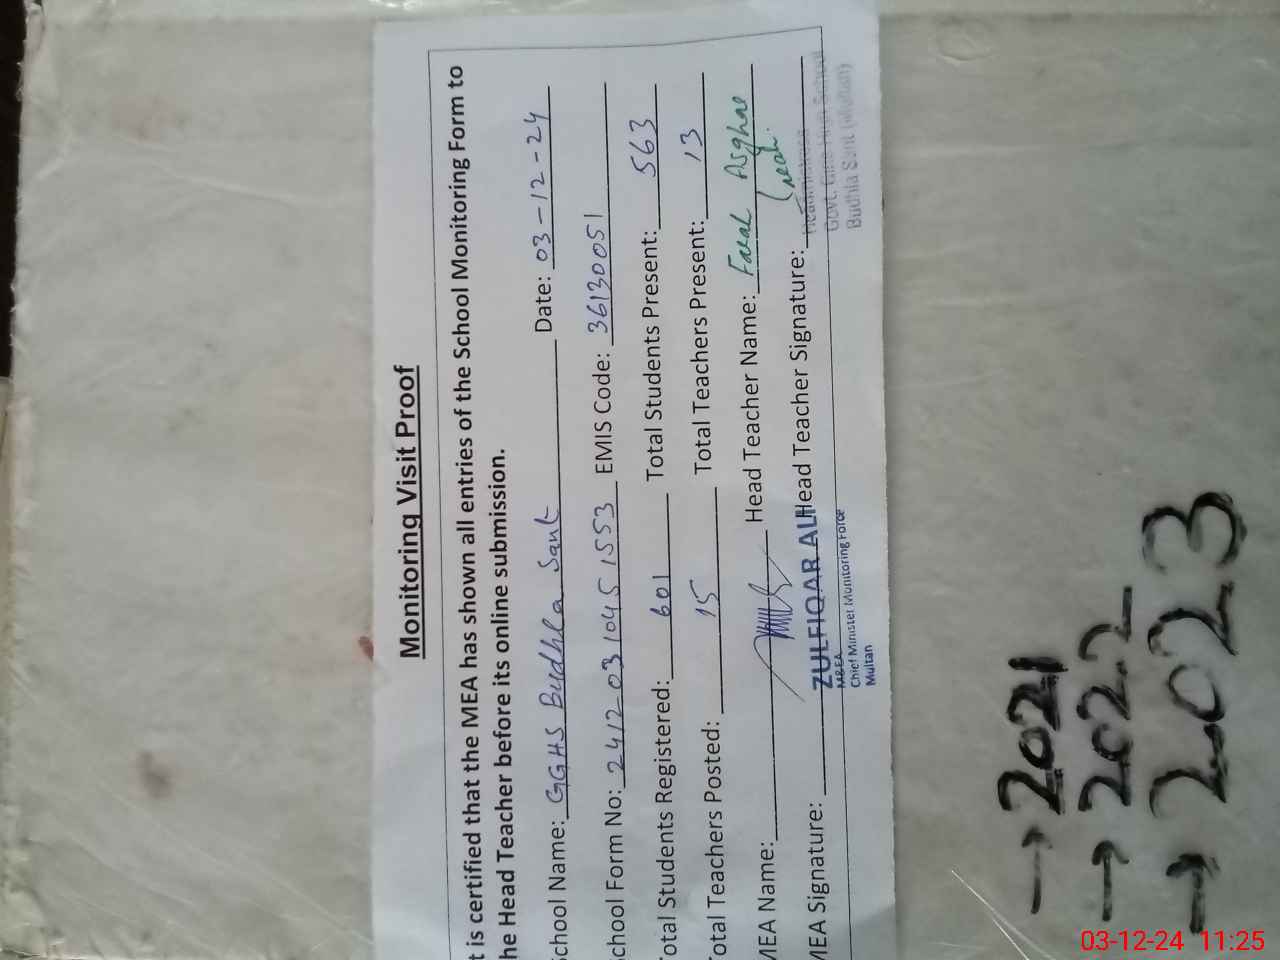 Monitoring Visit Proof
t is certified that the MEA has shown all entries of the School Monitoring Form to
he Head Teacher before its online submission.
chool Name: GGHS Budhla Sant Date: 03-12-24
chool Form No: 2412-0310451553 EMIS Code: 36130051
otal Students Registered: 601 Total Students Present: 563
otal Teachers Posted: 15 Total Teachers Present: 13
MEA Name: Head Teacher Name: Asghar
MEA Signature: Head Teacher Signature:
ZULFIQAR ALI
MEA
Chief Minister Monitoring Force
Multan
Headmistress
Govt. Girls High School
Budhla Sant (Multan)
→ 2021
→ 2022
→ 2023
03-12-24 11:25